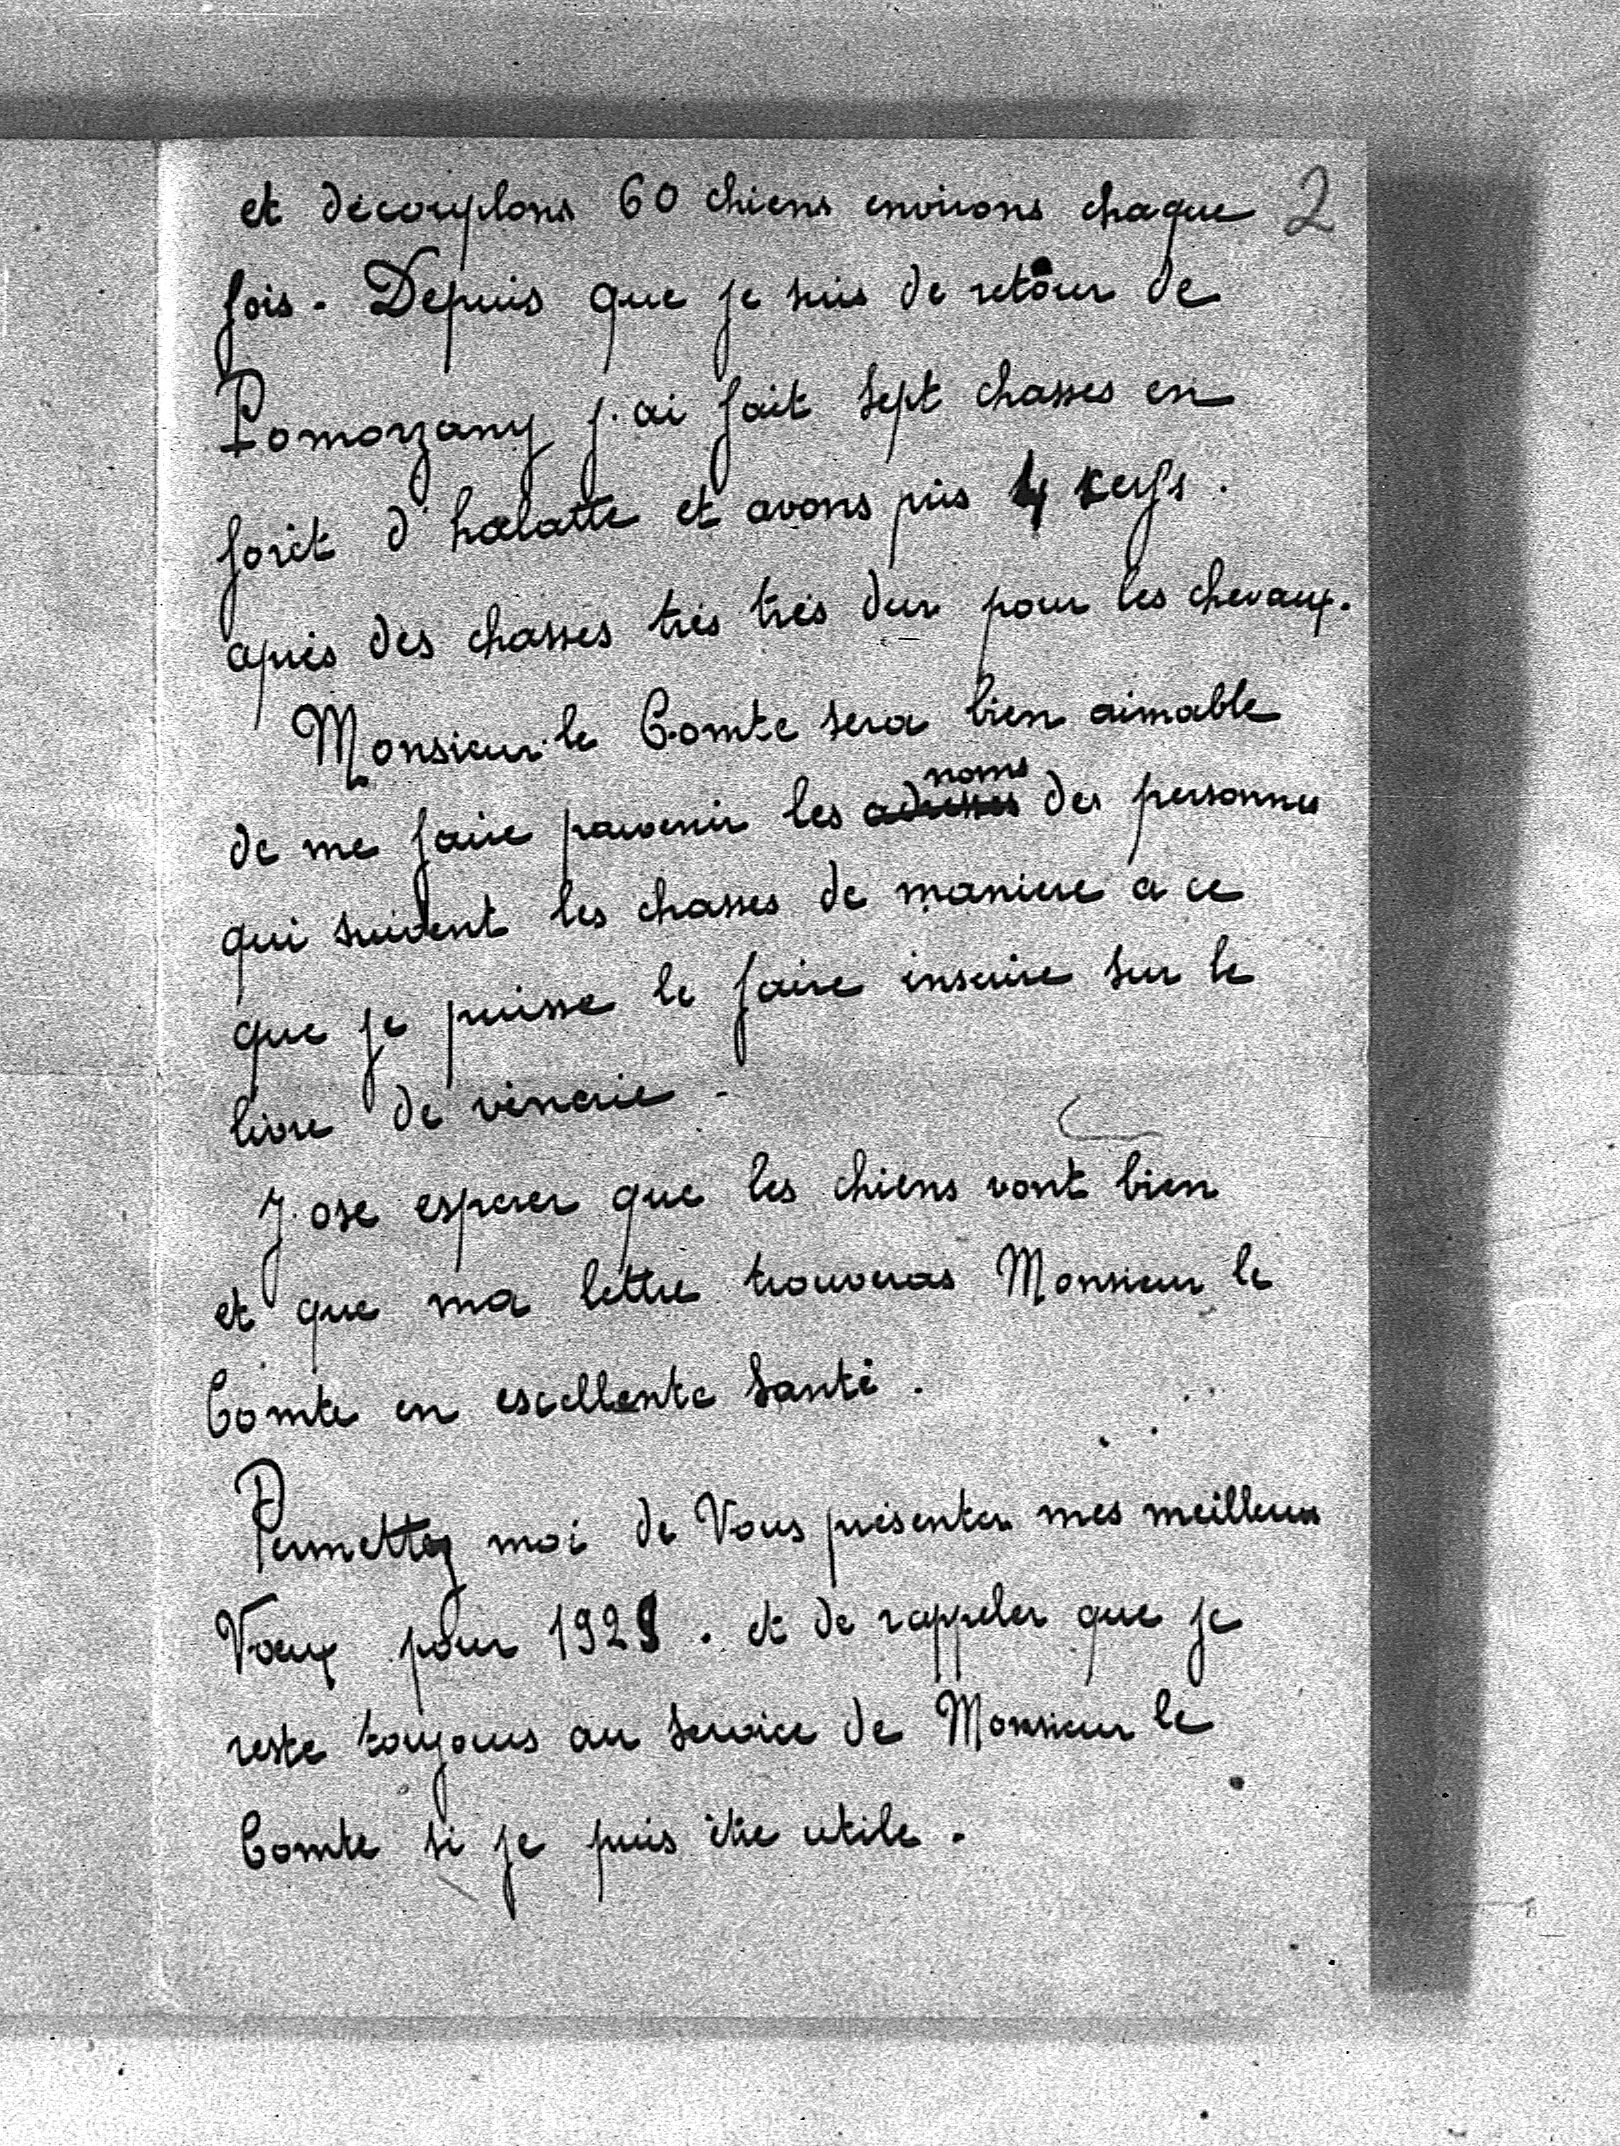 et découplons 60 chiens environs chaque 2
fois. Depuis que je suis de retour de
Pomorzany j'ai fait sept chasses en
forêt d'halatte et avons pris 4 cerfs.
après des chasses très très dur pour les chevaux.
Monsieur le Comte sera bien aimable
noms
de me faire parvenir les adresses des personnes
qui suivent les chasses de maniere a ce
que je puisse le faire inscrire sur le
livre de vénerie.
J'ose esperer que les chiens vont bien
et que ma lettre trouveras Monsieur le
Comte en escellente santé.
Permettez moi de Vous présenter mes meilleurs
Vœux pour 1929. et de rappeler que je
reste toujours au service de Monsieur le
Comte si je puis être utile.